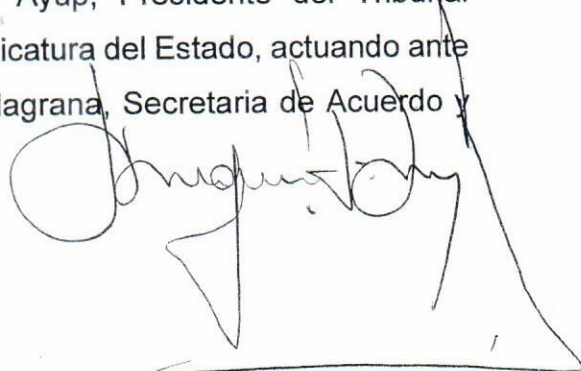 Ayup, Presidente del Tribunal
icatura del Estado, actuando ante
lagrana, Secretaria de Acuerdo y